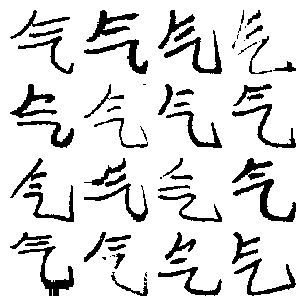 气气气气
气气气气
气气气气
气气气气